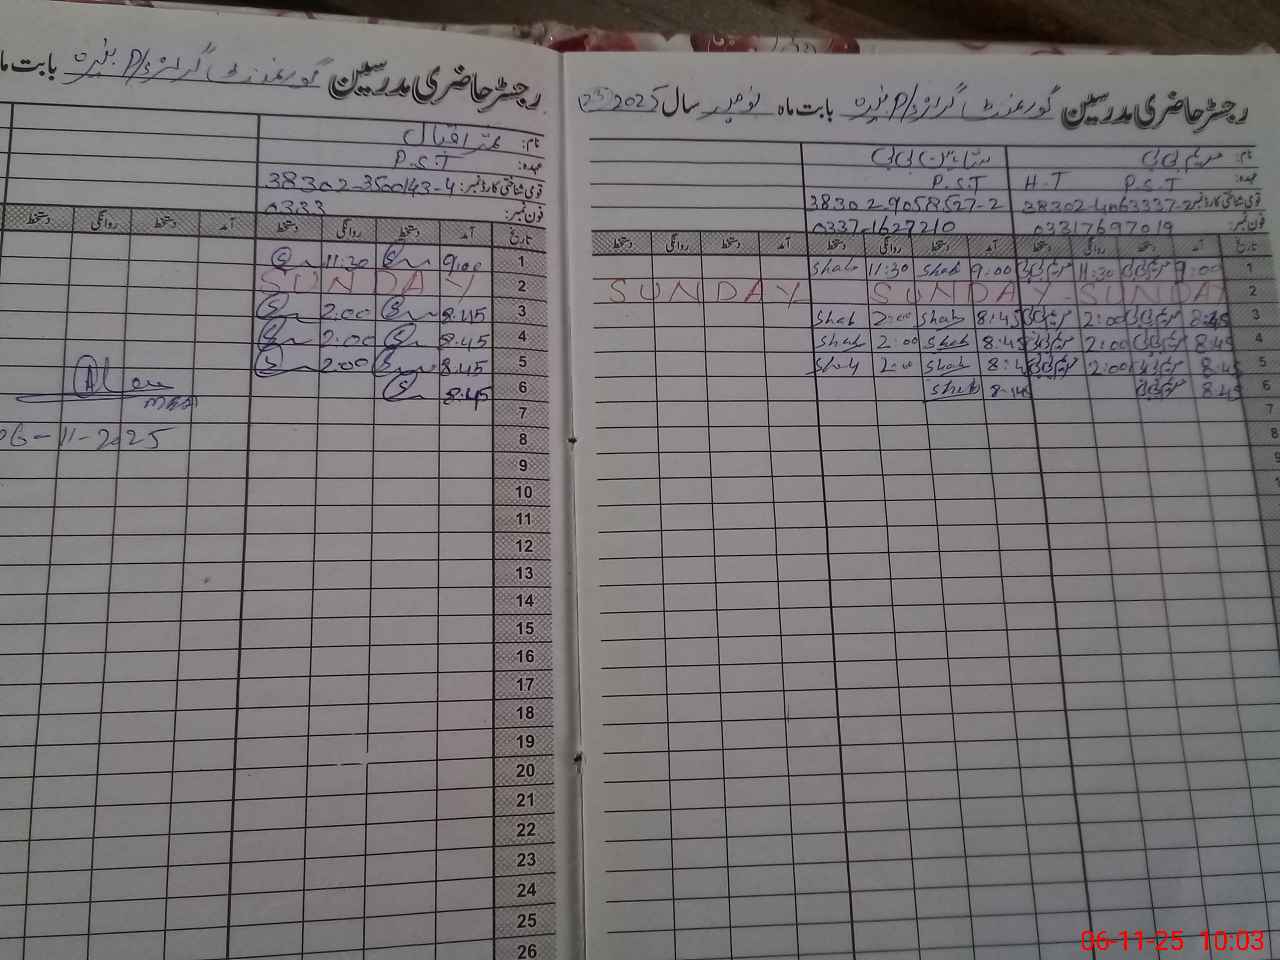 رجسٹر حاضری مدرسین گورنمنٹ گرلز P/S بابت ماہ نومبر سال 2025
نام: مریم بی بی
بی بی
عہدہ: P.S.T H.T
P.S.T
قومی شناختی کارڈ نمبر: 38302-4063337-2
38302-9058527-2
فون نمبر: 03317697019
0337-1627210
تاریخ آمد دستخط روانگی دستخط آمد دستخط روانگی دستخط آمد دستخط روانگی دستخط
1 9:00 11:30 9:00 Shab 11:30 Shab
2 SUNDAY SUNDAY SUNDAY
3 8:45 2:00 8:45 Shab 2:00 Shab
4 8:45 2:00 8:45 Shab 2:00 Shab
5 8:45 2:00 8:4 Shab 2:00 Shab
6 8:45 8:45 Shab
7
8
9
رجسٹر حاضری مدرسین گورنمنٹ گرلز P/S بابت ماہ
نام: اقبال
عہدہ: P.S.T
قومی شناختی کارڈ نمبر: 38302-3500143-4
فون نمبر: 0333
تاریخ آمد دستخط روانگی دستخط آمد دستخط روانگی دستخط
1 9:00 11:30
2 SUNDAY
3 8:45 2:00
4 8:45 2:00
5 8:45 2:00
6 8:45
7
8 06-11-2025
9
10
11
12
13
14
15
16
17
18
19
20
21
22
23
24
25
26
06-11-25 10:03